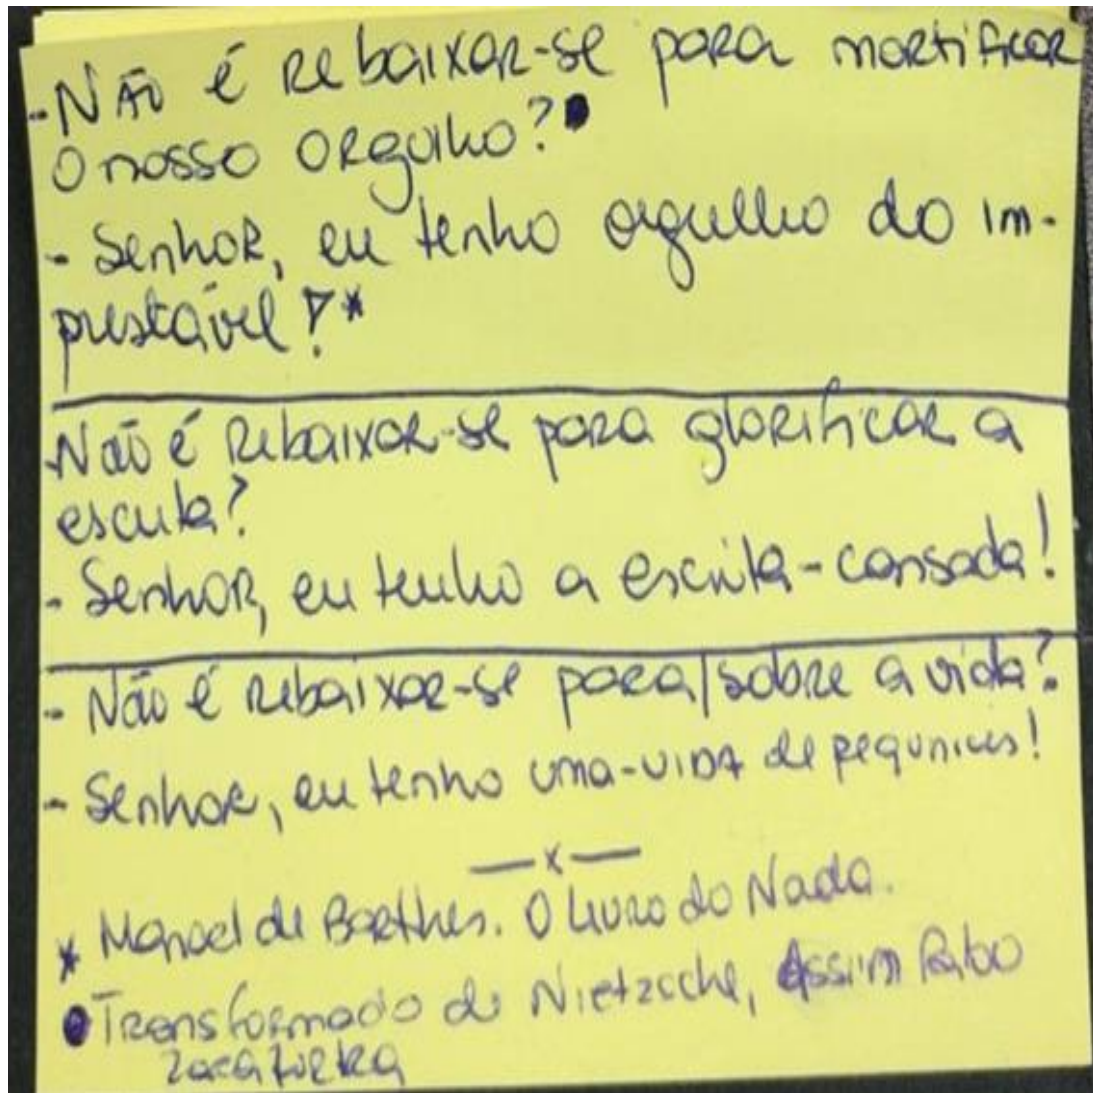 - Não é rebaixar-se para mortificar
o nosso orgulho?●
- Senhor, eu tenho orgulho do im-
prestável!*
Não é rebaixar-se para glorificar a
escuta?
- Senhor, eu tenho a escrita-cansada!
- Não é rebaixar-se para/sobre a vida?
- Senhor, eu tenho uma-vida de pequnices!
— x —
* Manoel de Barthes. O Livro do Nada.
● Transformado de Nietzsche, Assim